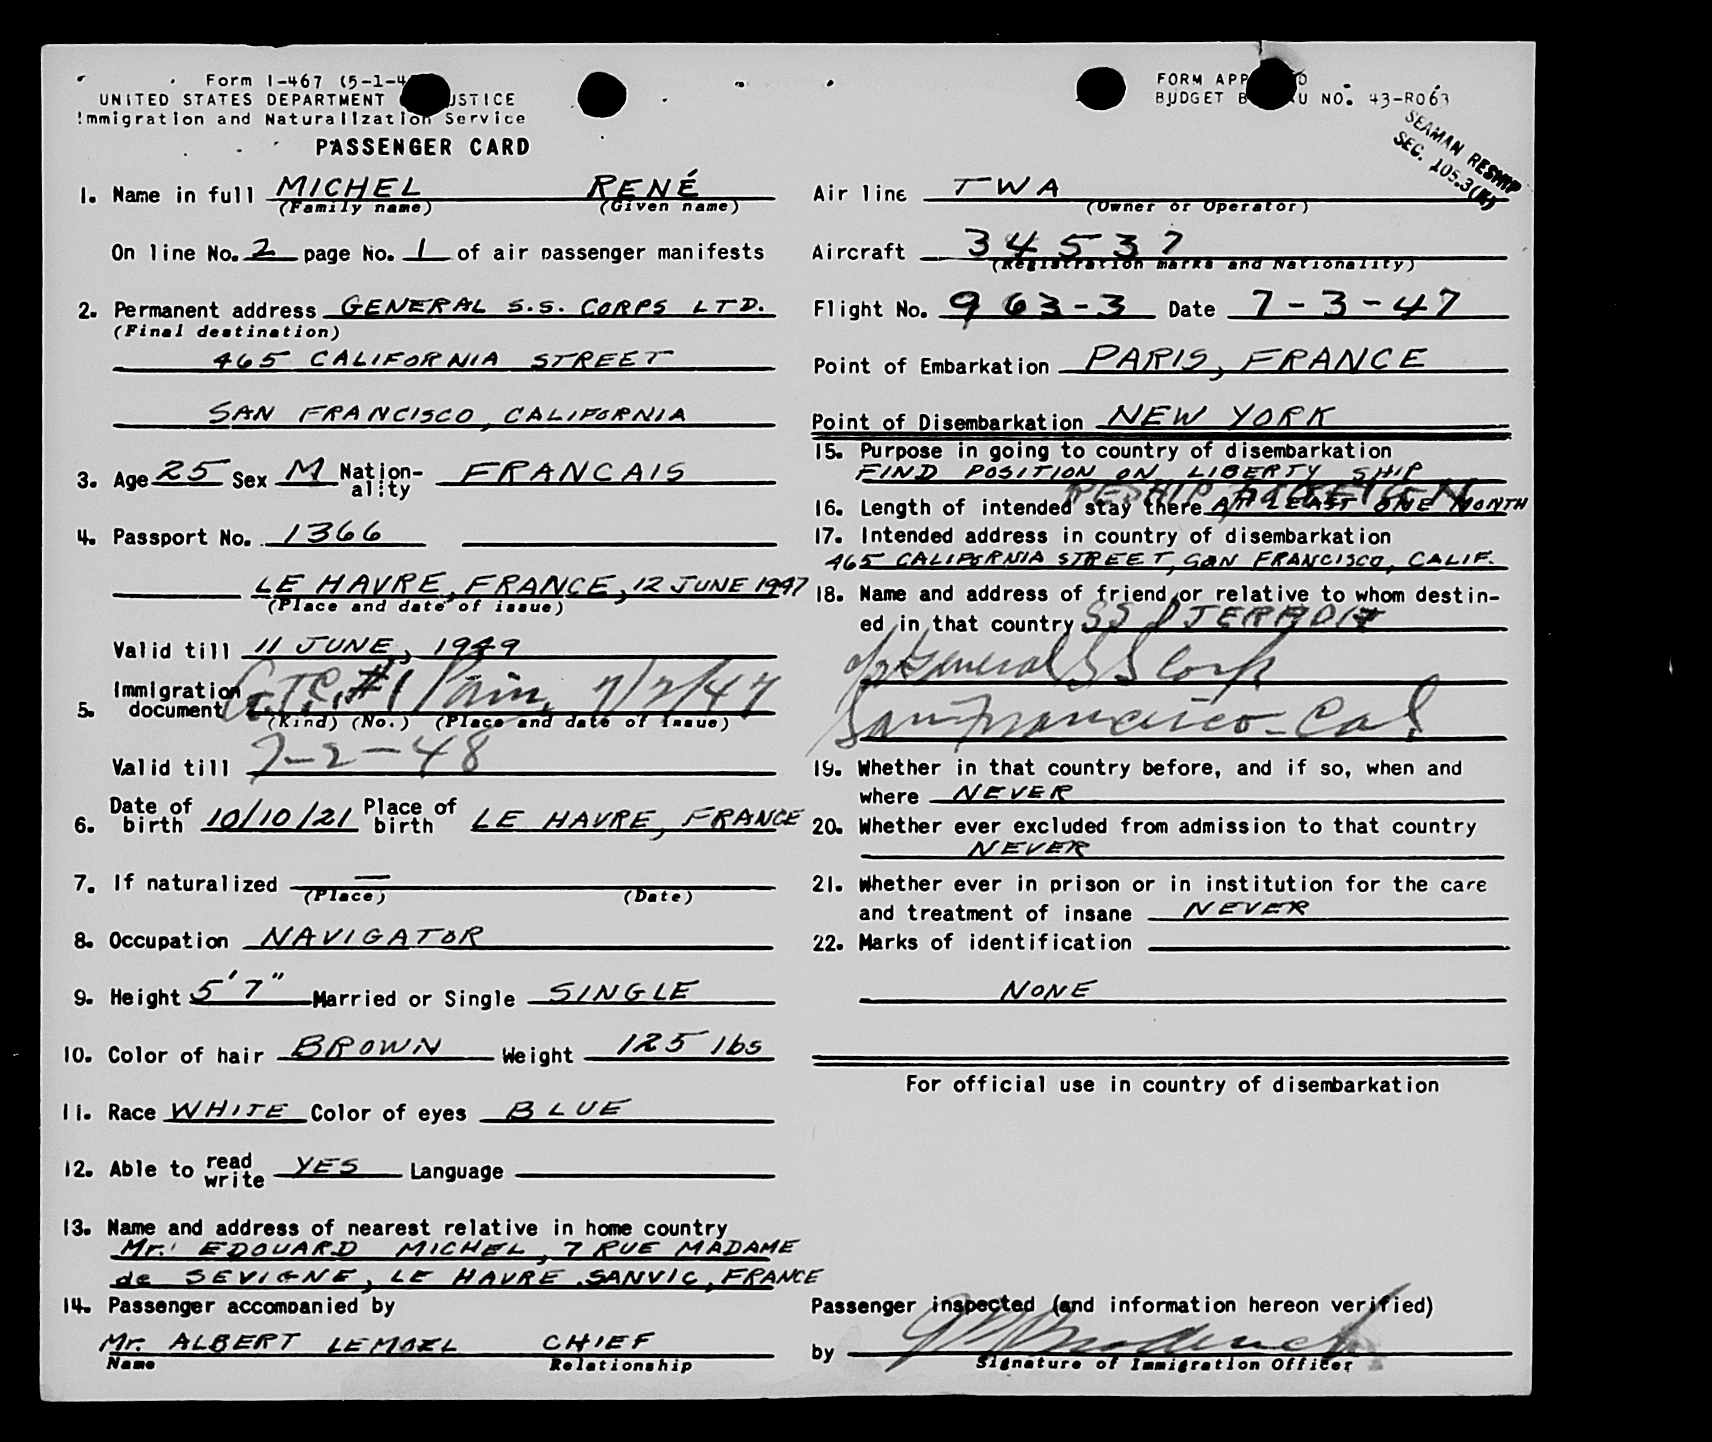 Form I-467 (5-1-4
UNITED STATES DEPARTMENT USTICE
Immigration and Naturalization Service
PASSENGER CARD
1. Name in full MICHEL RENÉ
(Family name) (Given name)
On line No. 2 page No. 1 of air passenger manifests
2. Permanent address GENERAL S.S. CORPS LTD.
(Final destination)
465 CALIFORNIA STREET
SAN FRANCISCO, CALIFORNIA
3. Age 25 Sex M Nation-ality FRANCAIS
4. Passport No. 1366
LE HAVRE, FRANCE, 12 JUNE 1947
(Place and date of issue)
Valid till 11 JUNE, 1949
5. Immigration document #1 7/2/47
(Kind) (No.) (Place and date of issue)
Valid till 7-2-48
6. Date of birth 10/10/21 Place of birth LE HAVRE, FRANCE
7. If naturalized —
(Place) (Date)
8. Occupation NAVIGATOR
9. Height 5'7" Married or Single SINGLE
10. Color of hair BROWN Weight 125 lbs
11. Race WHITE Color of eyes BLUE
12. Able to read write YES Language
13. Name and address of nearest relative in home country
Mr. EDOUARD MICHEL, 7 RUE MADAME
de SEVIGNE, LE HAVRE .SANVIC, FRANCE
14. Passenger accompanied by
Mr. ALBERT CHIEF
Name Relationship
FORM APP D
BUDGET B U NO. 43-R063
SEAMAN RESHIP
SEC. 105.3
Air line TWA
(Owner or Operator)
Aircraft 34537
(Registration marks and Nationality)
Flight No. 963-3 Date 7-3-47
Point of Embarkation PARIS, FRANCE
Point of Disembarkation NEW YORK
15. Purpose in going to country of disembarkation
FIND POSITION ON LIBERTY SHIP
RESHIP FOREIGN
16. Length of intended stay there AT LEAST ONE MONTH
17. Intended address in country of disembarkation
465 CALIFORNIA STREET, SAN FRANCISCO, CALIF.
18. Name and address of friend or relative to whom destin-
ed in that country SS
c/o General SS Corp
San Francisco - Cal
19. Whether in that country before, and if so, when and
where NEVER
20. Whether ever excluded from admission to that country
NEVER
21. Whether ever in prison or in institution for the care
and treatment of insane NEVER
22. Marks of identification
NONE
For official use in country of disembarkation
Passenger inspected (and information hereon verified)
by
Signature of Immigration Officer